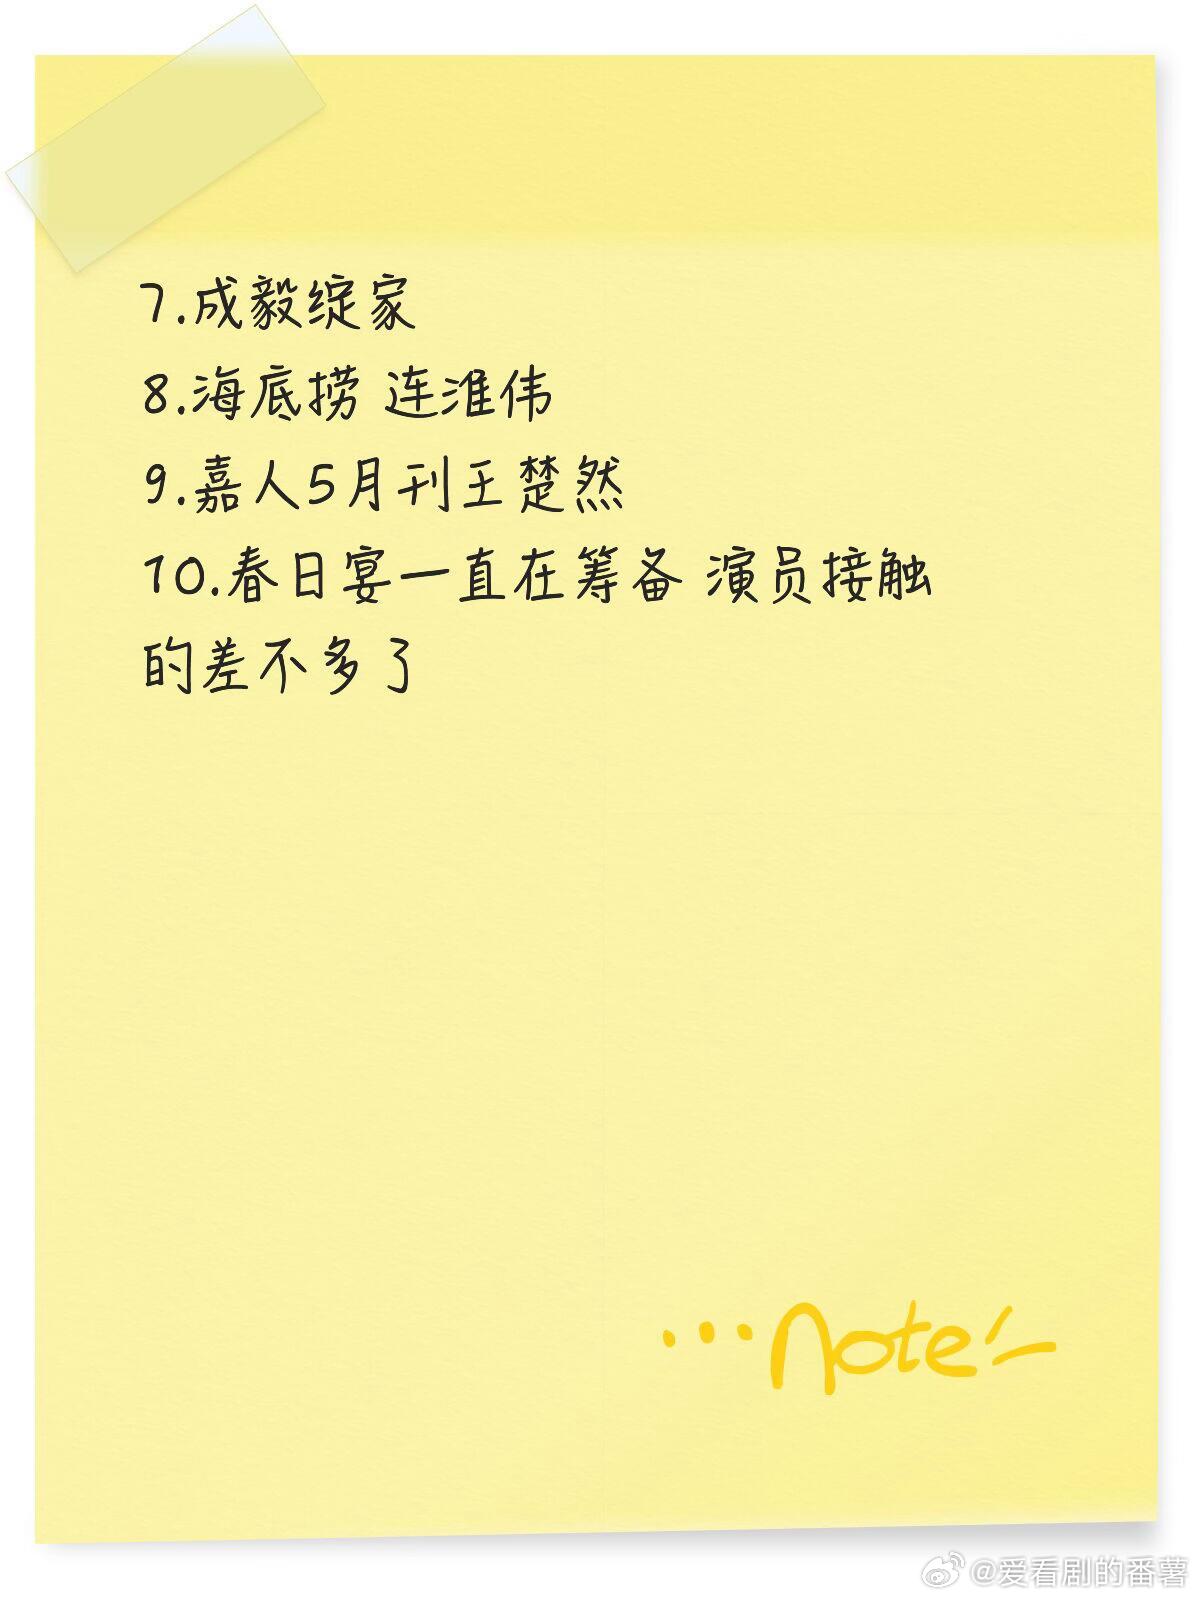 7.成毅绽家
8.海底捞 连淮伟
9.嘉人5月刊王楚然
10.春日宴一直在筹备 演员接触
的差不多了
...note
@爱看剧的番薯